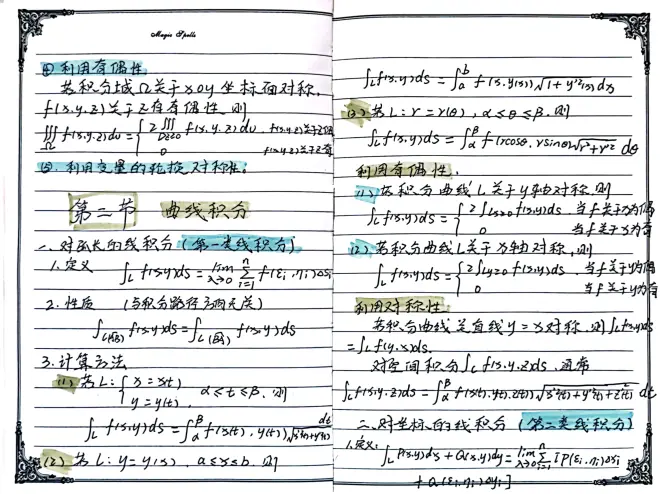 Magic Spells
④ 利用奇偶性
若积分域Ω关于xoy坐标面对称,
f(x.y.z)关于z有奇偶性,则
∭_Ω f(x.y.z)dv = { 2∭_{Ωz≥0} f(x.y.z)dv. f(x.y.z)关于z偶
0 f(x.y.z)关于z奇
⑤. 利用变量的轮换对称性.
第二节 曲线积分
一、对弧长的线积分(第一类线积分)
1. 定义 ∫_L f(x.y)ds = lim_{λ→0} Σ_{i=1}^n f(ξi.ηi)Δsi
2. 性质 (与积分路径方向无关)
∫_{L(AB)} f(x.y)ds = ∫_{L(BA)} f(x.y)ds
3. 计算方法
(1) 若L: { x=x(t)
y=y(t). α≤t≤β. 则
∫_L f(x.y)ds = ∫_α^β f(x(t), y(t))√(x'²(t)+y'²(t)) dt
(2) 若L: y=y(x). a≤x≤b. 则
∫_L f(x.y)ds = ∫_a^b f(x.y(x))√(1+y'²(x)) dx
(3) 若L: r=r(θ), α≤θ≤β. 则
∫_L f(x.y)ds = ∫_α^β f(rcosθ. rsinθ)√(r²+r'²) dθ
利用奇偶性.
(1) 若积分曲线L关于y轴对称,则
∫_L f(x.y)ds = { 2∫_{Lx≥0} f(x.y)ds. 当f关于x为偶
0 当f关于x为奇
(2) 若积分曲线L关于x轴对称,则
∫_L f(x.y)ds = { 2∫_{Ly≥0} f(x.y)ds. 当f关于y为偶
0 当f关于y为奇
利用对称性
若积分曲线关直线y=x对称.则∫_L f(x.y)ds
=∫_L f(y.x)ds.
对空间积分∫_L f(x.y.z)ds.通常
∫_L f(x.y.z)ds = ∫_α^β f(x(t).y(t).z(t))√(x'²(t)+y'²(t)+z'²(t)) dt
二、对坐标的线积分(第二类线积分)
1.定义: ∫_L P(x.y)dx+Q(x.y)dy = lim_{λ→0} Σ_{i=1}^n [P(ξi.ηi)Δxi
+Q(ξi.ηi)Δyi]